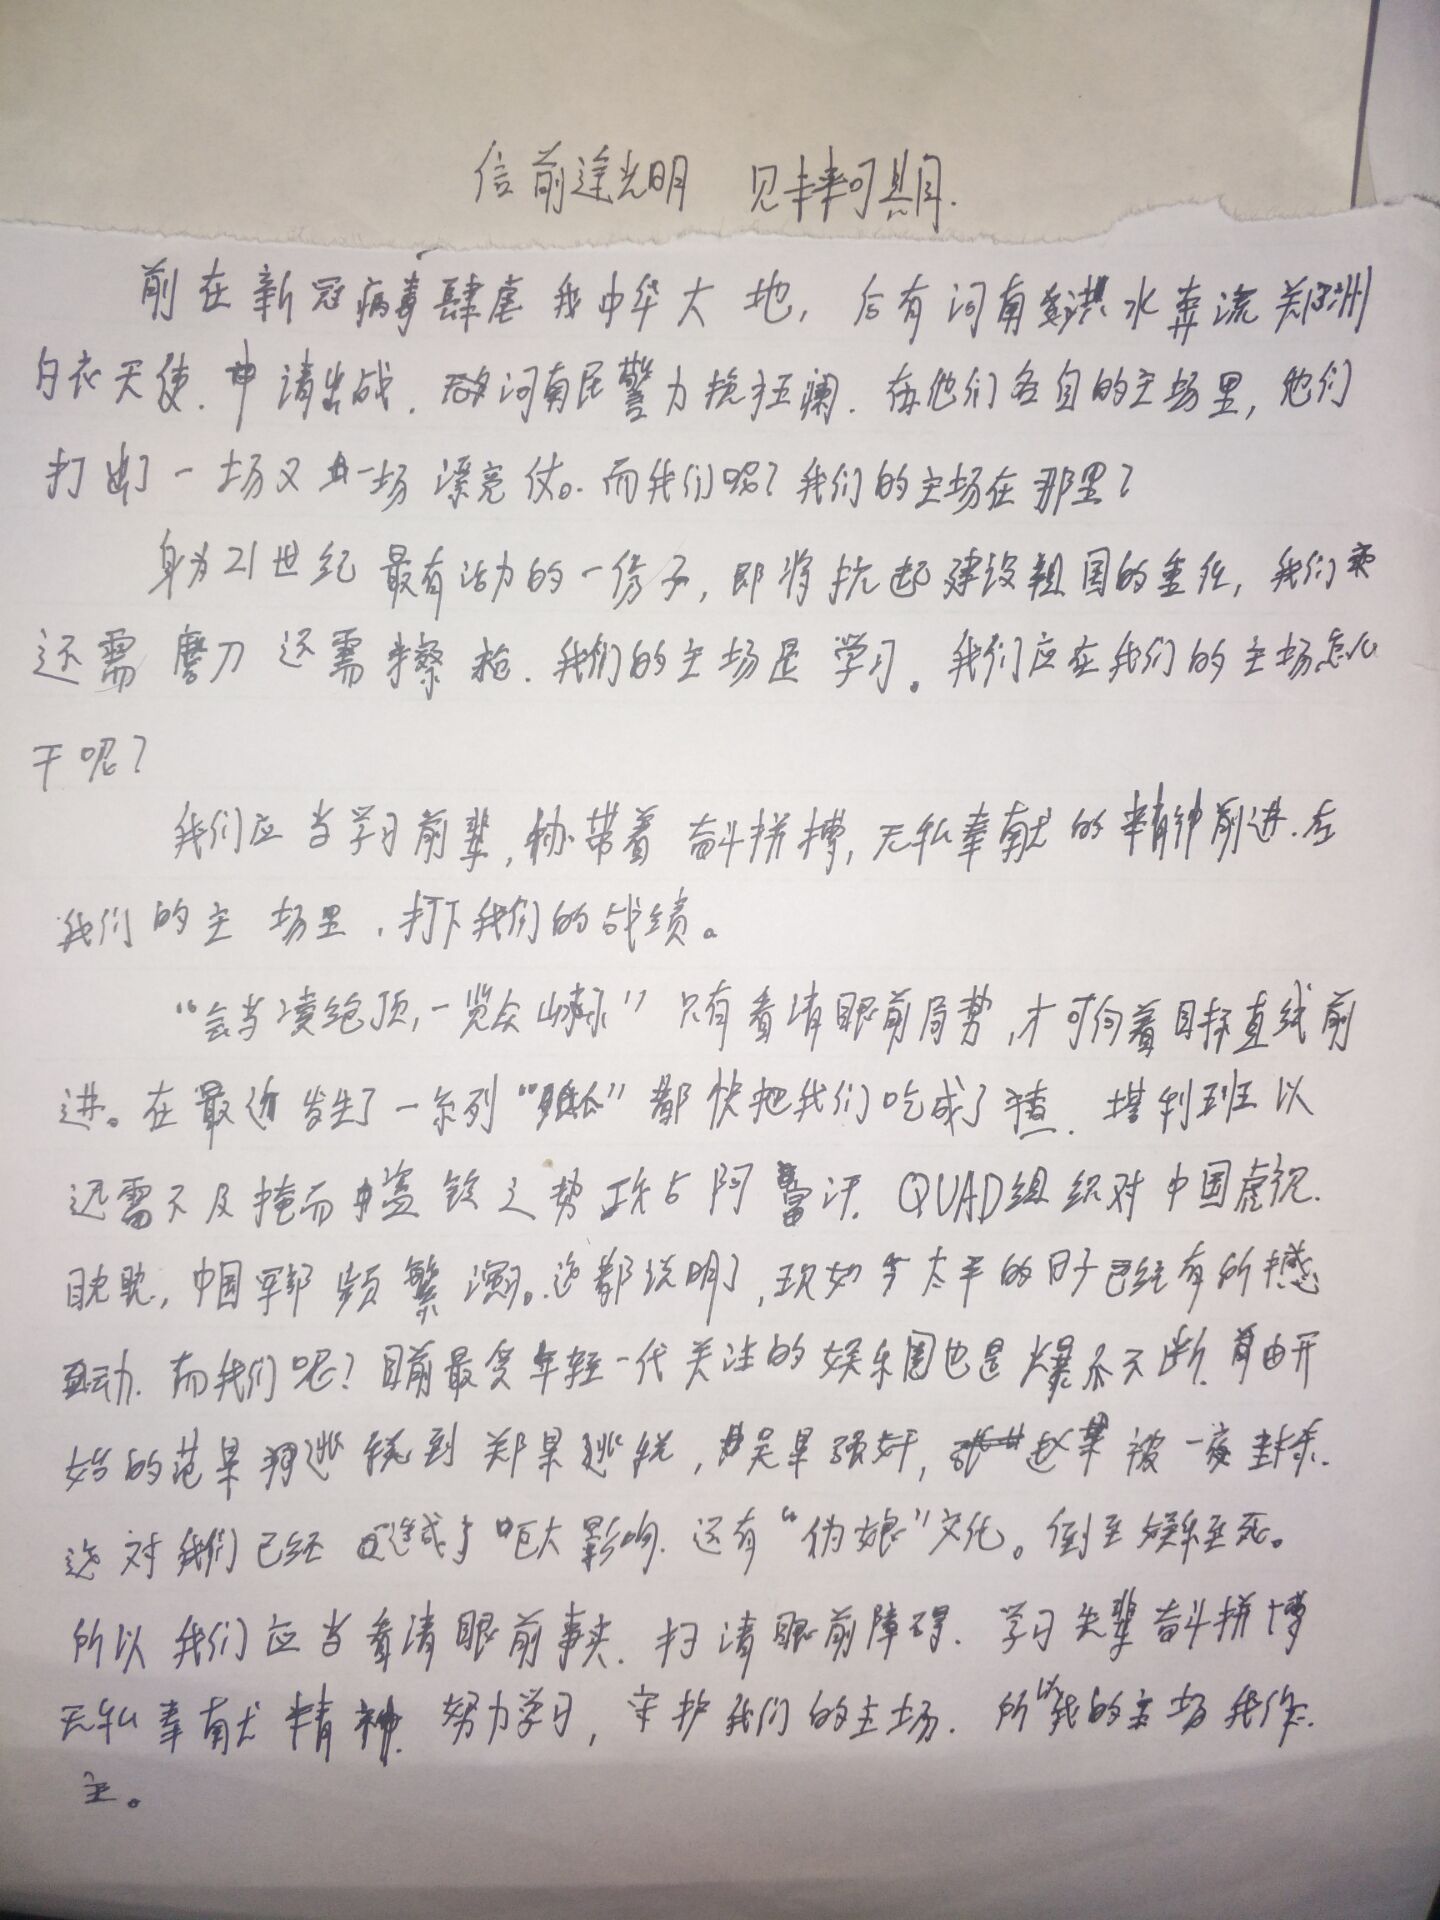 信前途光明 见未来可期.
前在新冠病毒肆虐我中华大地，后有河南洪水奔流郑州
白衣天使.申请出战.河南民警力挽狂澜.在他们各自的主场里，他们
打出了一场又一场漂亮仗。而我们呢？我们的主场在那里？
身为21世纪最有活力的一份子，即将抗起建设祖国的重任，我们
还需磨刀还需擦枪.我们的主场是学习。我们应在我们的主场怎么
干呢？
我们应当学习前辈，带着奋斗拼搏，无私奉献的精神前进.在
我们的主场里，打下我们的战绩。
“会当凌绝顶，一览众山小”只有看清眼前局势，才可向着目标直线前
进。在最近发生了一系列“瓜”都快把我们吃成了猹.塔利班以
迅雷不及掩而盗铃之势攻占阿富汗.QUAD组织对中国虎视.
眈眈，中国军部频繁演习。这都说明了，现如今太平的日子已经有所撼
动.而我们呢？目前最受年轻一代关注的娱乐圈也是爆瓜不断.自由开
始的范某逃税到郑某逃税，吴某强奸，赵某被一夜封杀.
这对我们已经造成了巨大影响.还有“伪娘”文化。倒至娱乐至死。
所以我们应当看清眼前事实.扫清眼前障碍.学习先辈奋斗拼博
无私奉献精神.努力学习，守护我们的主场.所以我的主场我作.
主。